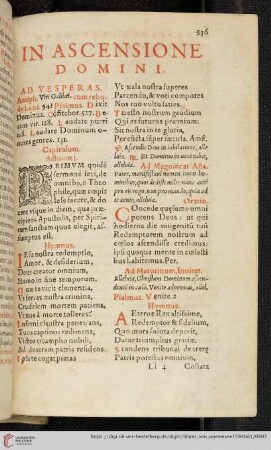 536
IN ASCENSIONE
DOMINI.
AD VESPERAS.
Antiph. Viri Galilæi. cum reliq.
de Laud. 541 Psalmus. Dixit
Dominus. Confitebor. 527. B
tus vir. 128. Laudate pueri
Laudate Dominum o-
mnes gentes. 131.
Capitulum.
Actuum 1.
PRIMUM quidē
sermonē feci, de
omnibo, ô Theo
phile, quæ cœpit
Iesv facere, & do
cere vsque in diem, qua præci-
piens Apostolis, per Spiri-
tum sanctum quos elegit, as-
sumptus est.
Hymnus.
IEsu nostra redemptio,
Amor, & desiderium,
Deus creator omnium,
Homo in fine temporum.
Quæ te vicit clementia,
Vt ferres nostra crimina,
Crudelem mortem patiens,
Vt nos à morte tolleres?
Inferni claustra penetrans,
Tuos captiuos redimens,
Victor triumpho nobili,
Ad dextram patris residens.
Ipsa te cogat pietas
Vt mala nostra superes
Parcendo, & voti compotes
Nos tuo vultu saties.
Tu esto nostrum gaudium
Qui es futurus præmium,
Sit nostra in te gloria,
Per cūcta semper sæcula. Amē.
℣. Ascendit Deus in iubilatione, alle
luia. ℟. Et Dominus in voce tubæ,
alleluia.
Ad Magnificat Aña.
Pater, manifestaui nomen tuum homi-
nibus, quos dedisti mihi: nunc autē
pro eis rogo, non pro mundo, quia ad
te venio, alleluia.
Oratio.
COncede quæsumus omni
potens Deus: vt qui
hodierna die Vnigenitū tuū
Redemptorem nostrum ad
cœlos ascendisse credimus:
ipsi quoque mente in cœlesti
bus habitemus. Per.
Ad Matutinum, Inuitat.
Alleluia, Christum Dominum ascen-
dentem in cœlū. Venite adoremus, allel.
Psalmus. Venite. 2
Hymnus.
AEterne Rex altissime,
Redemptor & fidelium,
Quo mors soluta deperit,
Datur triumphus gratiæ.
Scandens tribunal dexteræ
Patris potestas omnium,
Ll 4 Collata
https://digi.ub.uni-heidelberg.de/diglit/